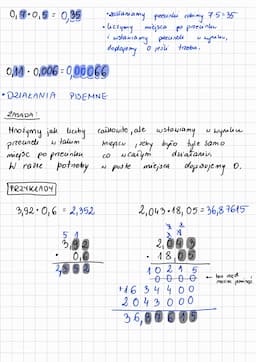 0,7 · 0,5 = 0,35
• zostawiamy przecinki robimy 7·5=35
• liczymy miejsca po przecinku
i wstawiamy przecinek w wyniku,
dodajemy 0 jeśli trzeba.
0,11 · 0,006 = 0,00066
• DZIAŁANIA PISEMNE
ZASADA:
Mnożymy jak liczby całkowite, ale wstawiamy w wyniku
przecinek w takim miejscu, żeby było tyle samo
miejsc po przecinku co w całym działaniu.
W razie potrzeby w puste miejsca dopisujemy 0.
PRZYKŁADY
3,92 · 0,6 = 2,352
2,043 · 18,05 = 36,87615
5 1
3,92
· 0,6
2,352
2,043
· 18,05
10215
0000
+16 34400
2043000
36,87615